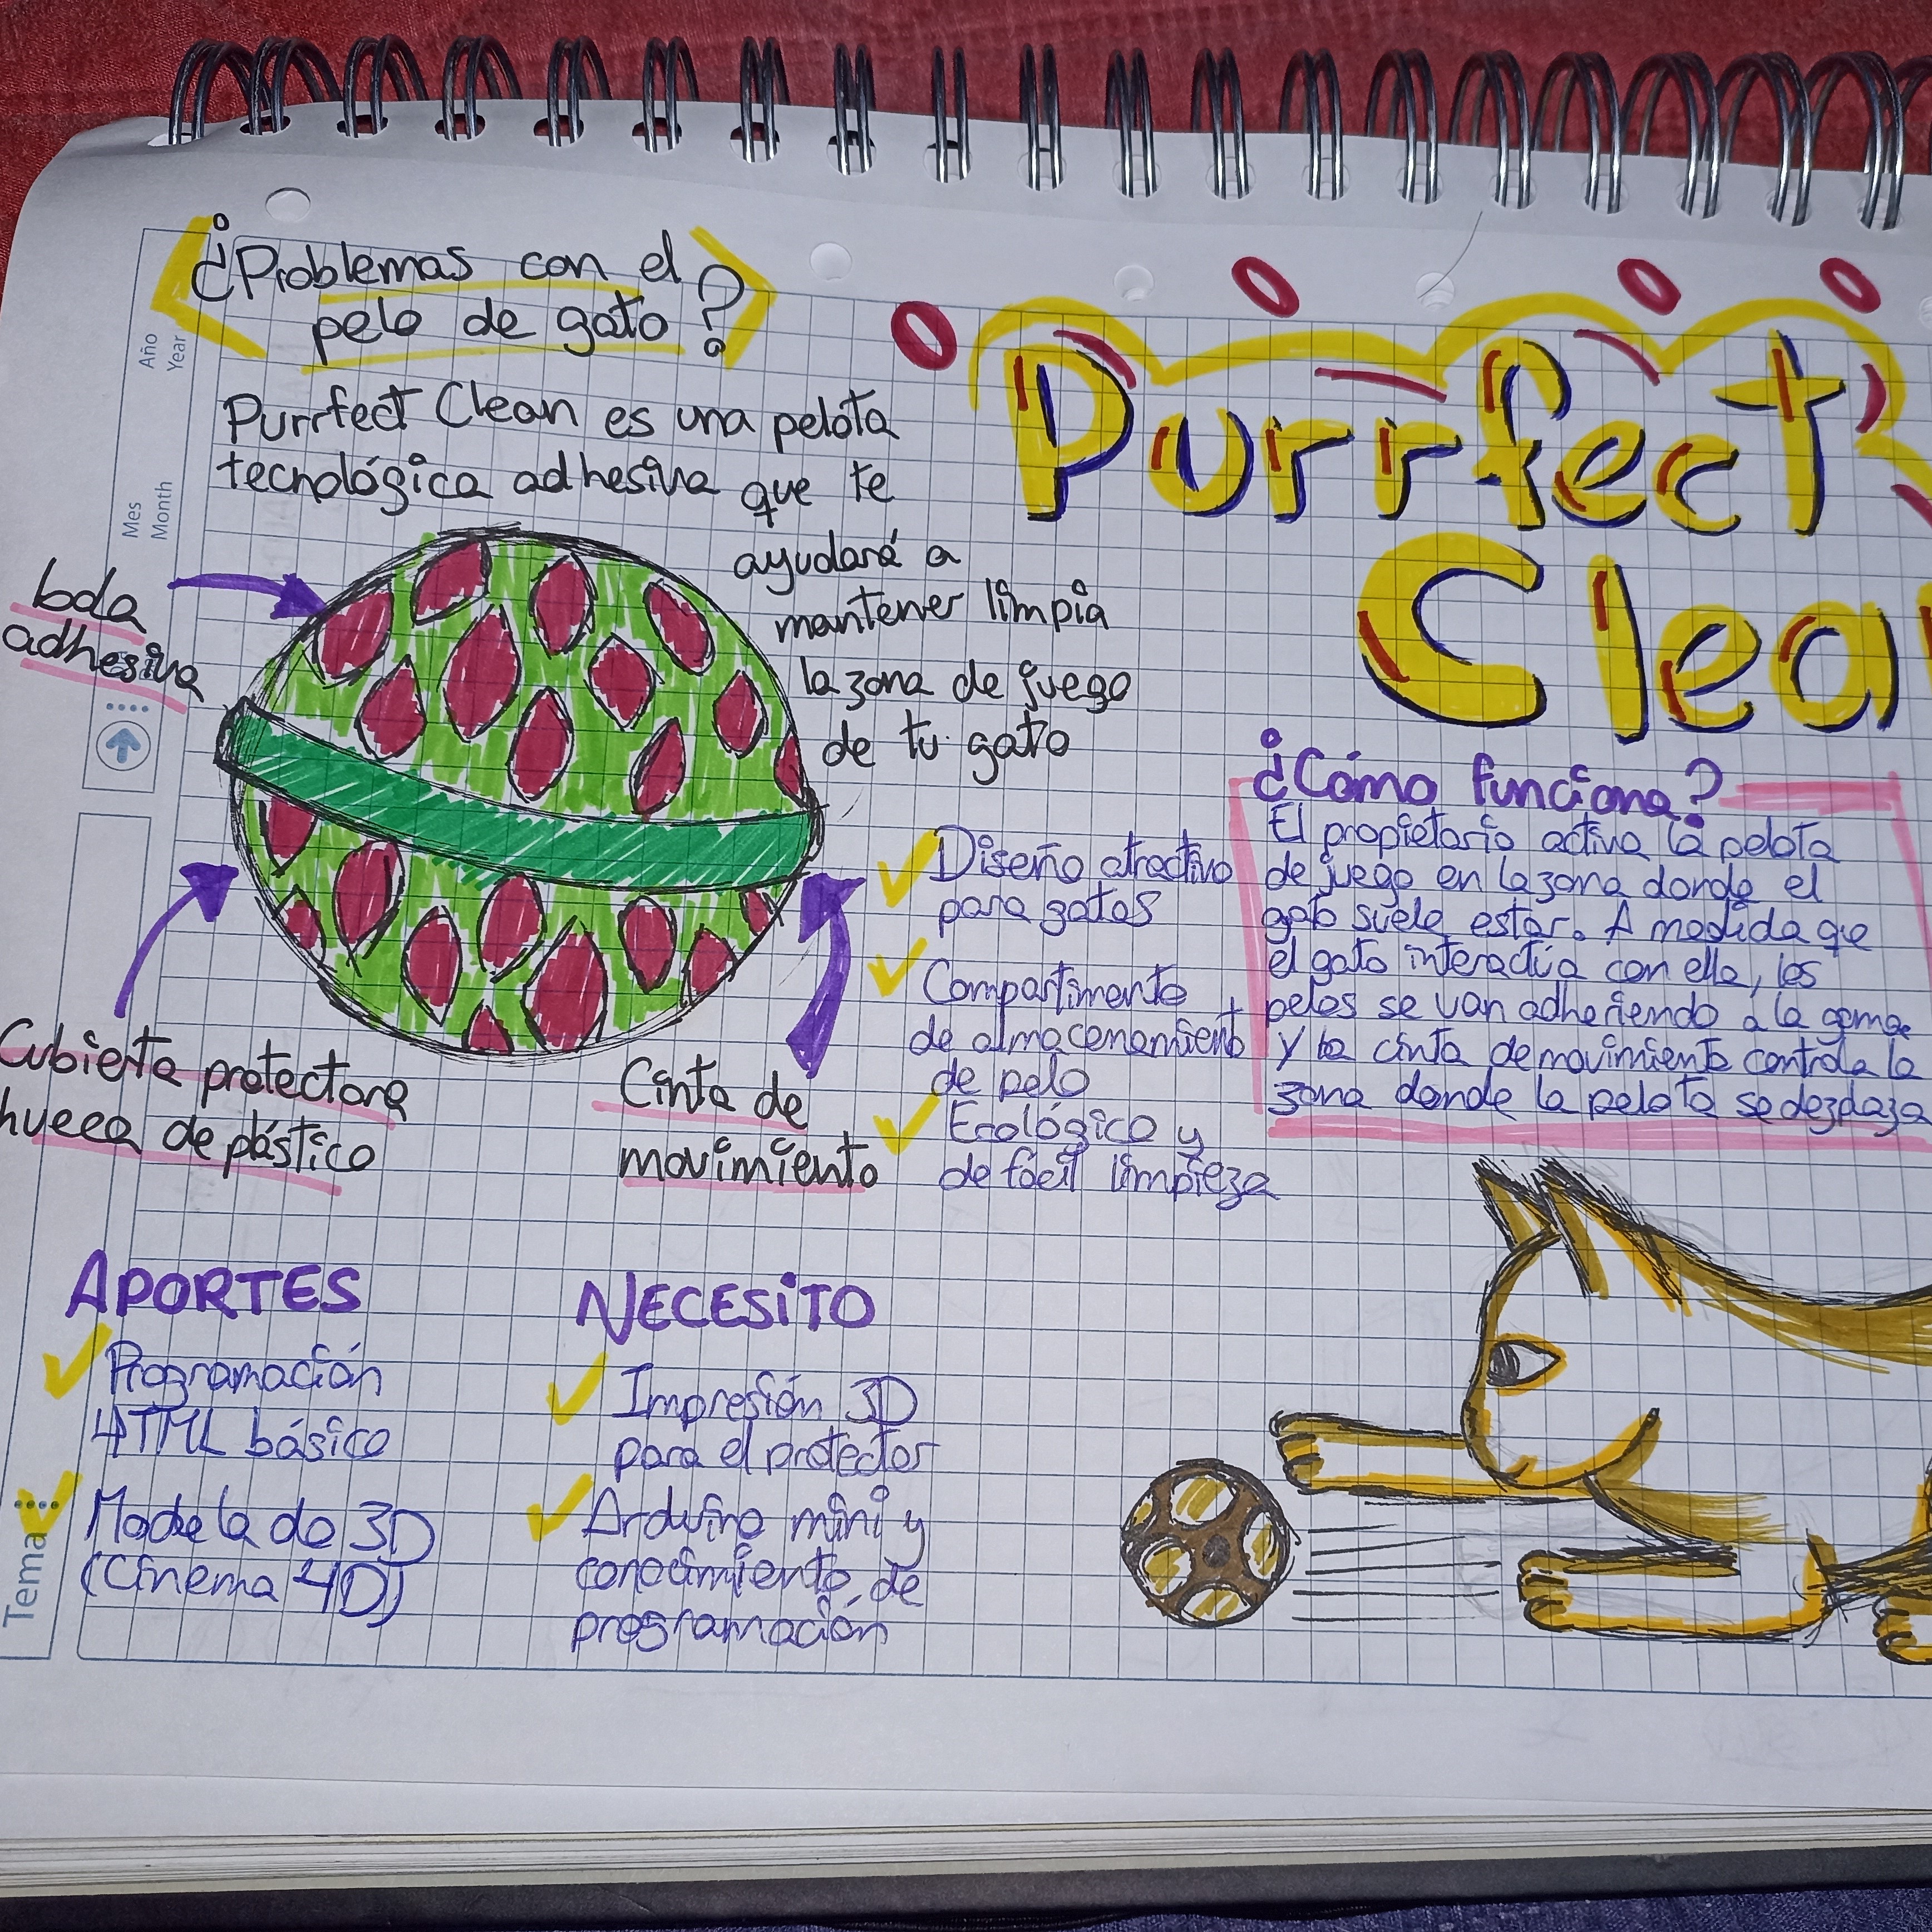 ¿Problemas con el
pelo de gato?
Purrfect Clean es una pelota
tecnológica adhesiva que te
ayudará a
mantener limpia
la zona de juego
de tu gato
bola
adhesiva
Cubierta protectora
hueca de plástico
Cinta de
movimiento
Purrfect
Clea
Diseño atractivo
para gatos
Compartimento
de almacenamiento
de pelo
Ecológico y
de fácil limpieza
¿Cómo funciona?
El propietario activa la pelota
de juego en la zona donde el
gato suele estar. A medida que
el gato interactúa con ella, los
pelos se van adheriendo a la goma
y la cinta de movimiento controla la
zona donde la pelota se dezplaza
APORTES
Programación
HTML básico
Modelado 3D
(Cinema 4D)
NECESITO
Impresión 3D
para el protector
Arduino mini y
conocimiento de
programación
Año
Year
Mes
Month
Tema